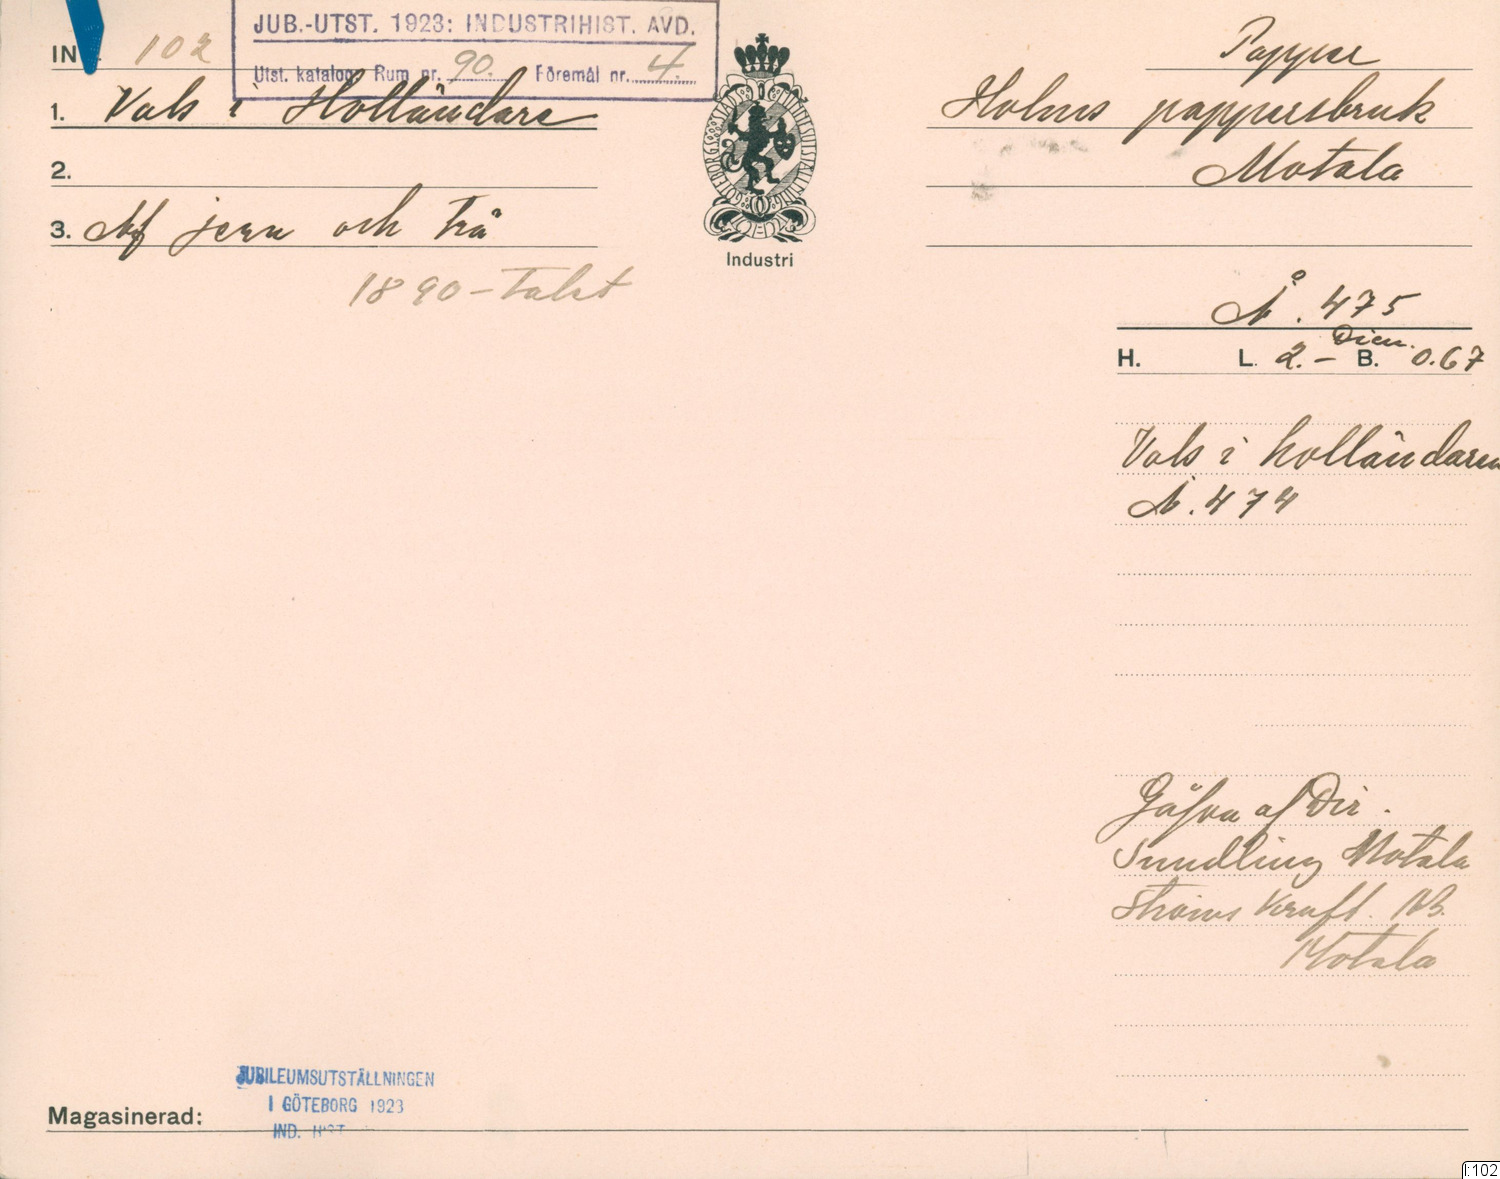 JUB.-UTST. 1923: INDUSTRIHIST. AVD.
Utst. katalog Rum nr. 90. Föremål nr. 4.
IN 102
1. Vals i Holländare
2.
3. Af jern och trä
1890-talet
GÖTEBORGS STADS JUBILEUMSUTSTÄLLNING
Industri
Papper
Holms pappersbruk
Motala
Å. 475
Diam.
H. L. 2.- B. 0.67
Vals i holländaren
Å. 474
Gåfva af Dir.
Sundling Motala
Ströms Kraft. AB.
Motala
JUBILEUMSUTSTÄLLNINGEN
I GÖTEBORG 1923
IND. HIST
Magasinerad:
I:102